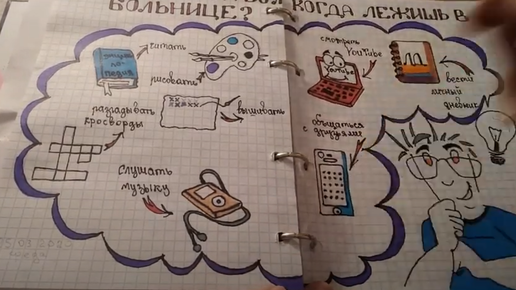 КОГДА ЛЕЖИШЬ В
БОЛЬНИЦЕ?
читать
рисовать
разгадывать
кросворды
вышивать
слушать
музыку
смотреть
YouTube
YouTube
вести
личный
дневник
общаться
с друзьями